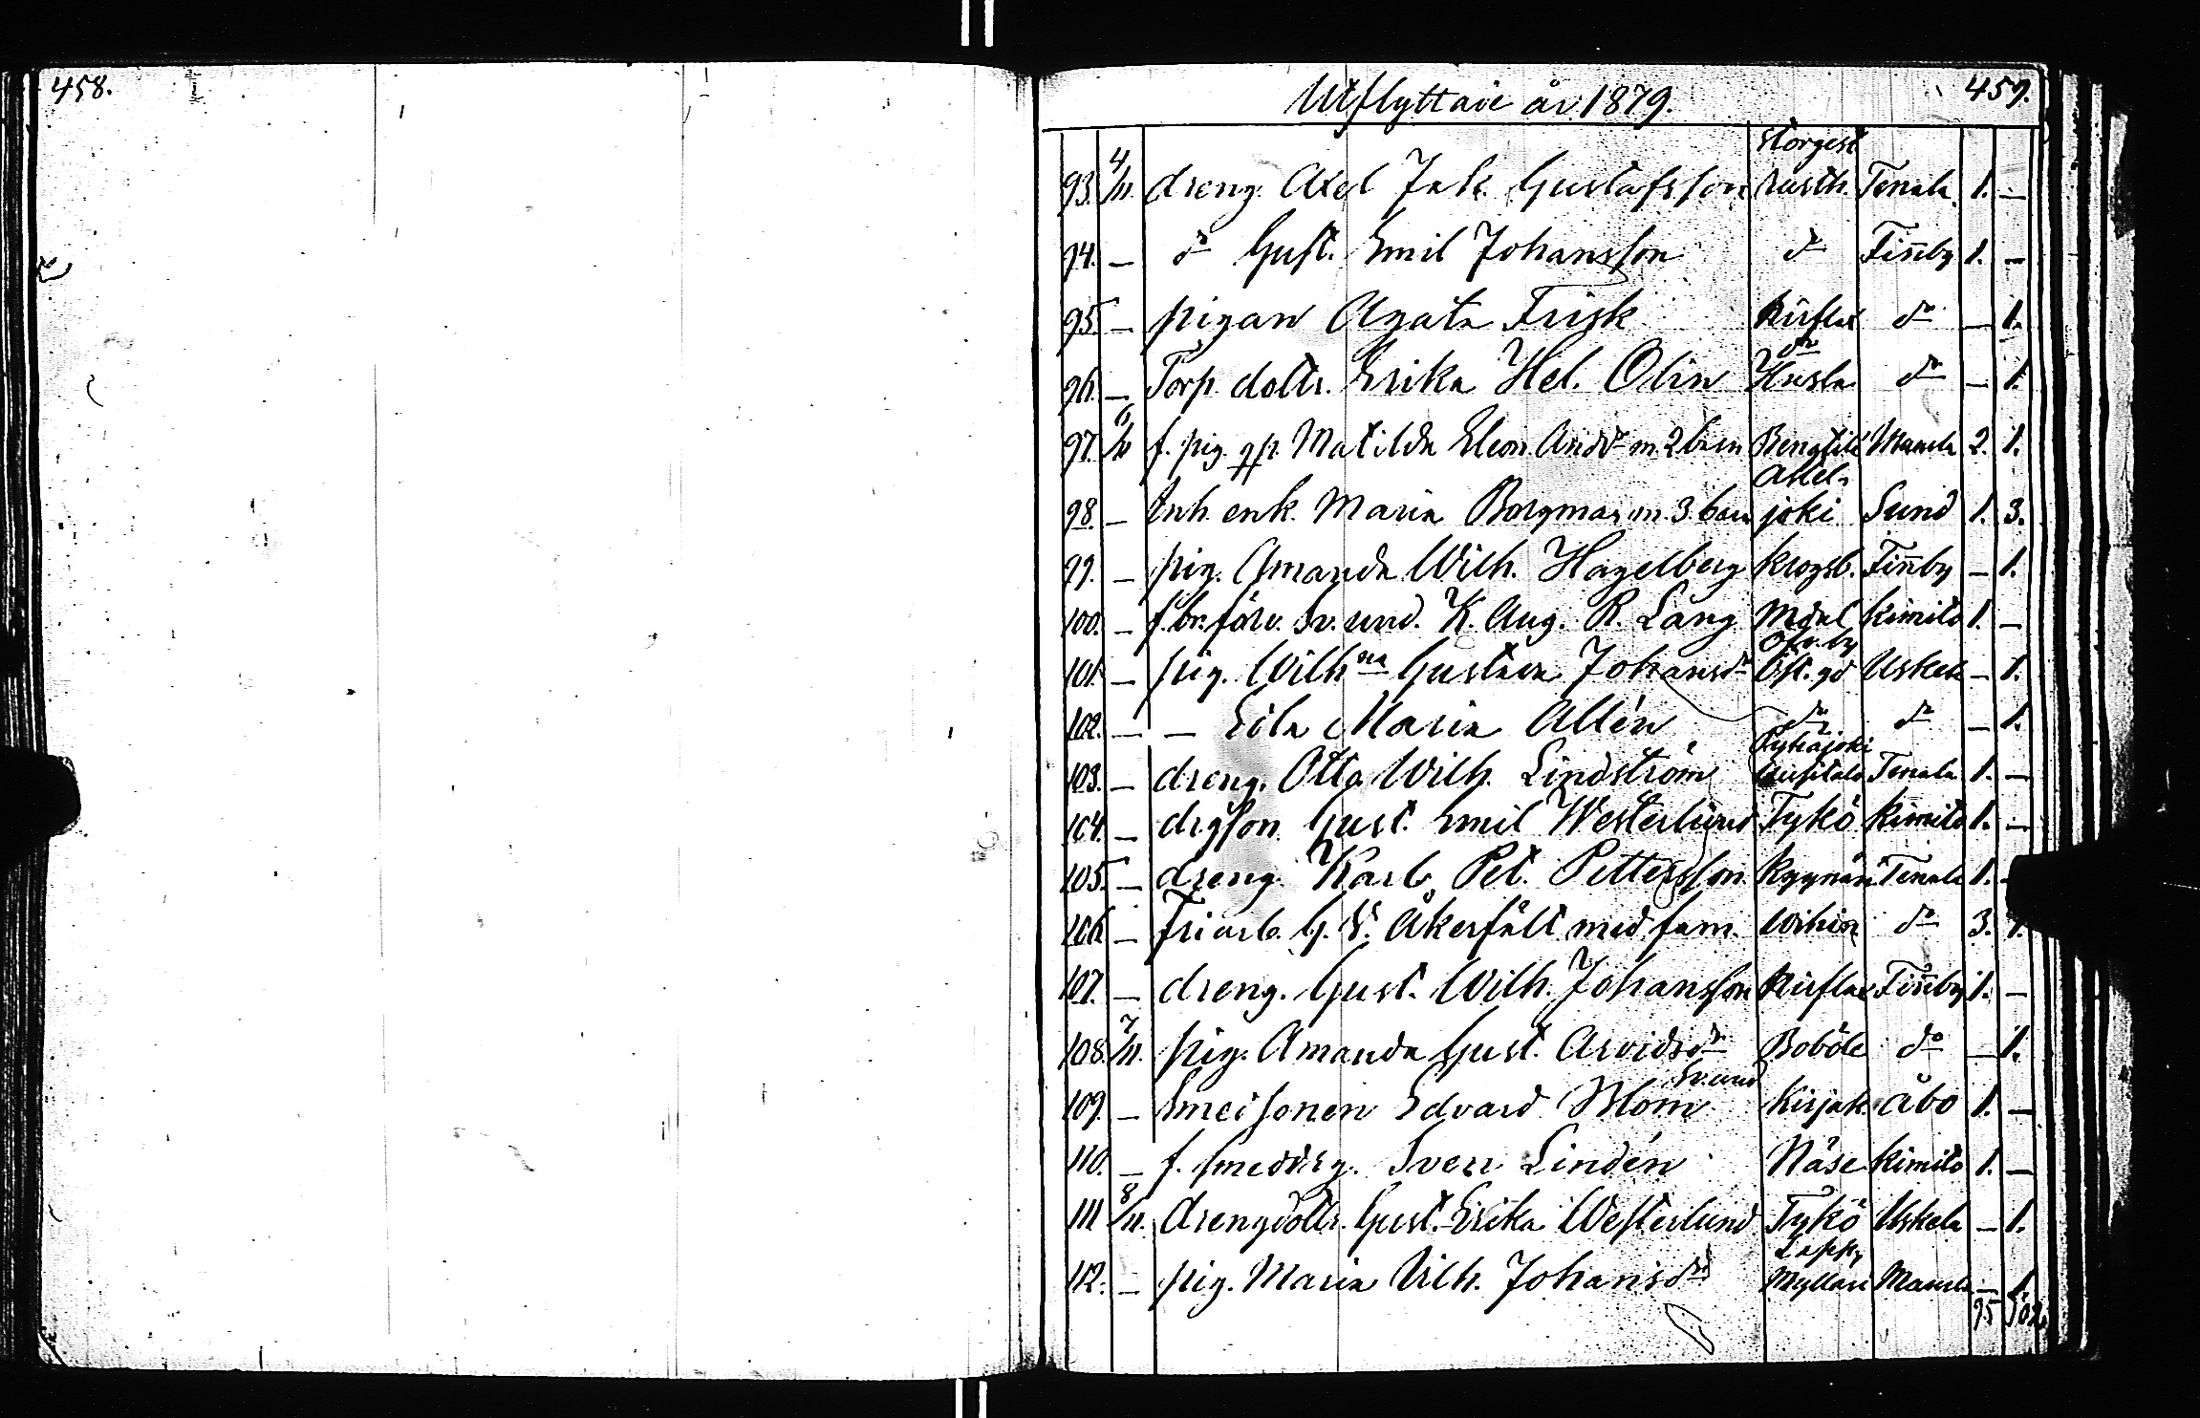 458.
459.
Utflyttade år 1879.
93. 4/11. dreng. Axel Jak. Gustafsson Storgest rusth. Tenala. 1. —
94. — do Gust. Emil Johansson do Finby 1. —
95. — pigan Agata Frisk Kirflax do — 1.
96. — Torp. dottr. Erika Hel. Olin do Husla do — 1.
97. 6/11 f. pig. qp. Matilda Eleon. Andsdr m. 2 barn Bengtila 2. 1.
98. — Inh. enk. Maria Borgman m. 3 barn joki Sund 1. 3.
99. — pig. Amanda Wilh. Hagelberg Krogsb. Finby — 1.
100. — f. br. förv. Sv. und. K. Aug. R. Lång Kimito 1. —
101. — pig. Wilhna Gustava Johansdr Öfv. by Öst. gd Uskela — 1.
102. — — Eila Maria Allén do do — 1.
103. — dreng. Otto Wilh. Lindström Pyhäjoki Uusitalo Tenala 1. —
104. — drgson Gust. Emil Westerlund Tykö Kimito 1. —
105. — dreng. Karl Pet. Pettersson Kyynär. Tenala 1.
106. — Friarb. G. V. Åkerfält med fam. do 3. 1.
107. — dreng. Gust. Wilh. Johansson Kirflax Finby 1. —
108. 7/11. pig. Amanda Gust. Arvidsdr Boböle do — 1.
109. — Smedsonen Edvard Blom Sv. und Kirjak. Åbo 1. —
110. — f. smeddrg. Sven Lindén Näse Kimito 1. —
111 8/11. Drengdottr. Gust. Erika Westerlund Tykö Uskela — 1.
112. — pig. Maria Vilh. Johansdr Lapp. Myllari — 1.
95